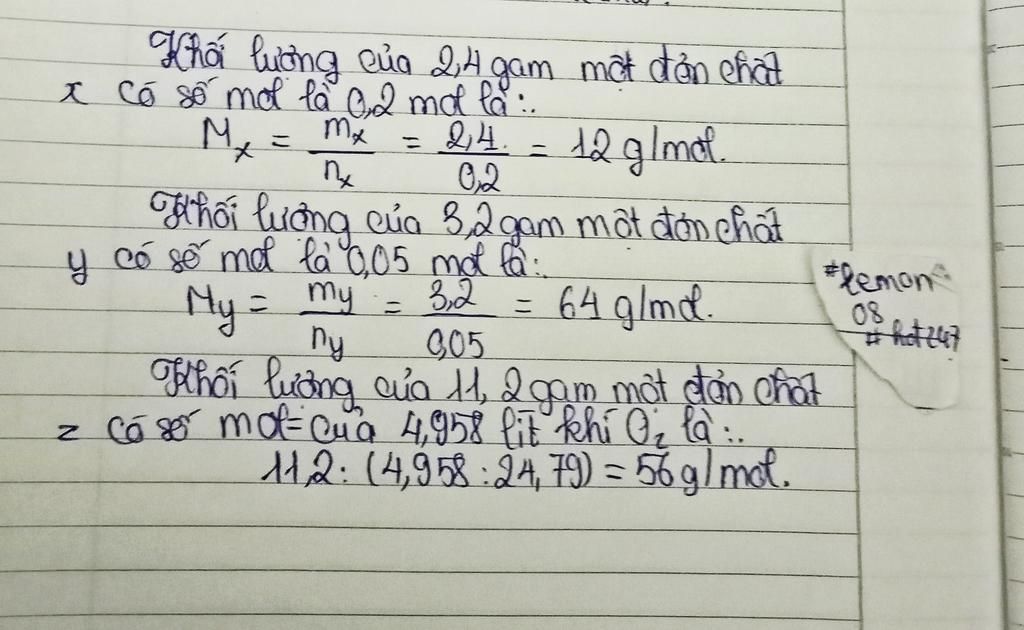 Khối lượng của 2,4 gam một đơn chất
x có số mol là 0,2 mol là:.
Mx = mx/nx = 2,4/0,2 = 12 g/mol.
Khối lượng của 3,2 gam một đơn chất
y có số mol là 0,05 mol là:.
My = my/ny = 3,2/0,05 = 64 g/mol.
Khối lượng của 11,2 gam một đơn chất
z có số mol = của 4,958 lít khí O₂ là:.
11,2 : (4,958 : 24,79) = 56 g/mol.
#lemon
08